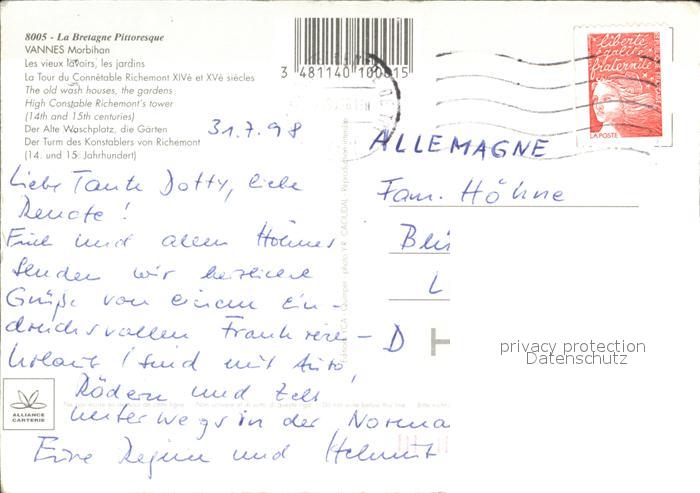 8005 - La Bretagne Pittoresque
VANNES Morbihan
Les vieux lavoirs, les jardins
La Tour du Connétable Richemont XIVè et XVè siècles
The old wash houses, the gardens
High Constable Richemont's tower
(14th and 15th centuries)
Der Alte Waschplatz, die Gärten
Der Turm des Konstablers von Richemont
(14. und 15. Jahrhundert)
3 481140 100815
liberté
égalité
fraternité
LA POSTE
31.7.98
Liebe Tante Dotty, liebe
Renate!
Euch und allen Höhnes
senden wir herzliche
Grüße von einem ein-
drucksvollen Frankreich-
urlaub! Sind mit Auto,
Rädern und Zelt
unterwegs in der Norma
Eure Regina und Helmut
ALLEMAGNE
Fam. Höhne
L
D
privacy protection
Datenschutz
ALLIANCE
CARTERIE